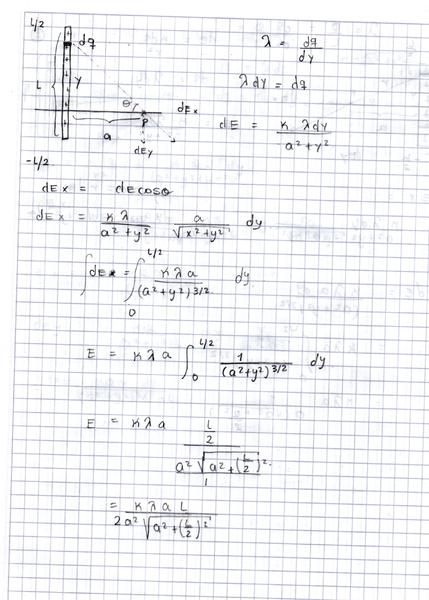 L/2
dq
L
y
θ
P
dEx
a
dEy
-L/2
λ = dq/dy
λdy = dq
dE = K λdy / a² + y²
dEx = dE cosθ
dEx = Kλ / a² + y² a / √x² + y² dy
∫dEx = ∫₀^(L/2) Kλa / (a² + y²)^3/2 dy
E = Kλa ∫₀^(L/2) 1 / (a² + y²)^3/2 dy
E = Kλa (L/2) / (a² √a² + (L/2)² / 1)
= KλaL / 2a² √a² + (L/2)²